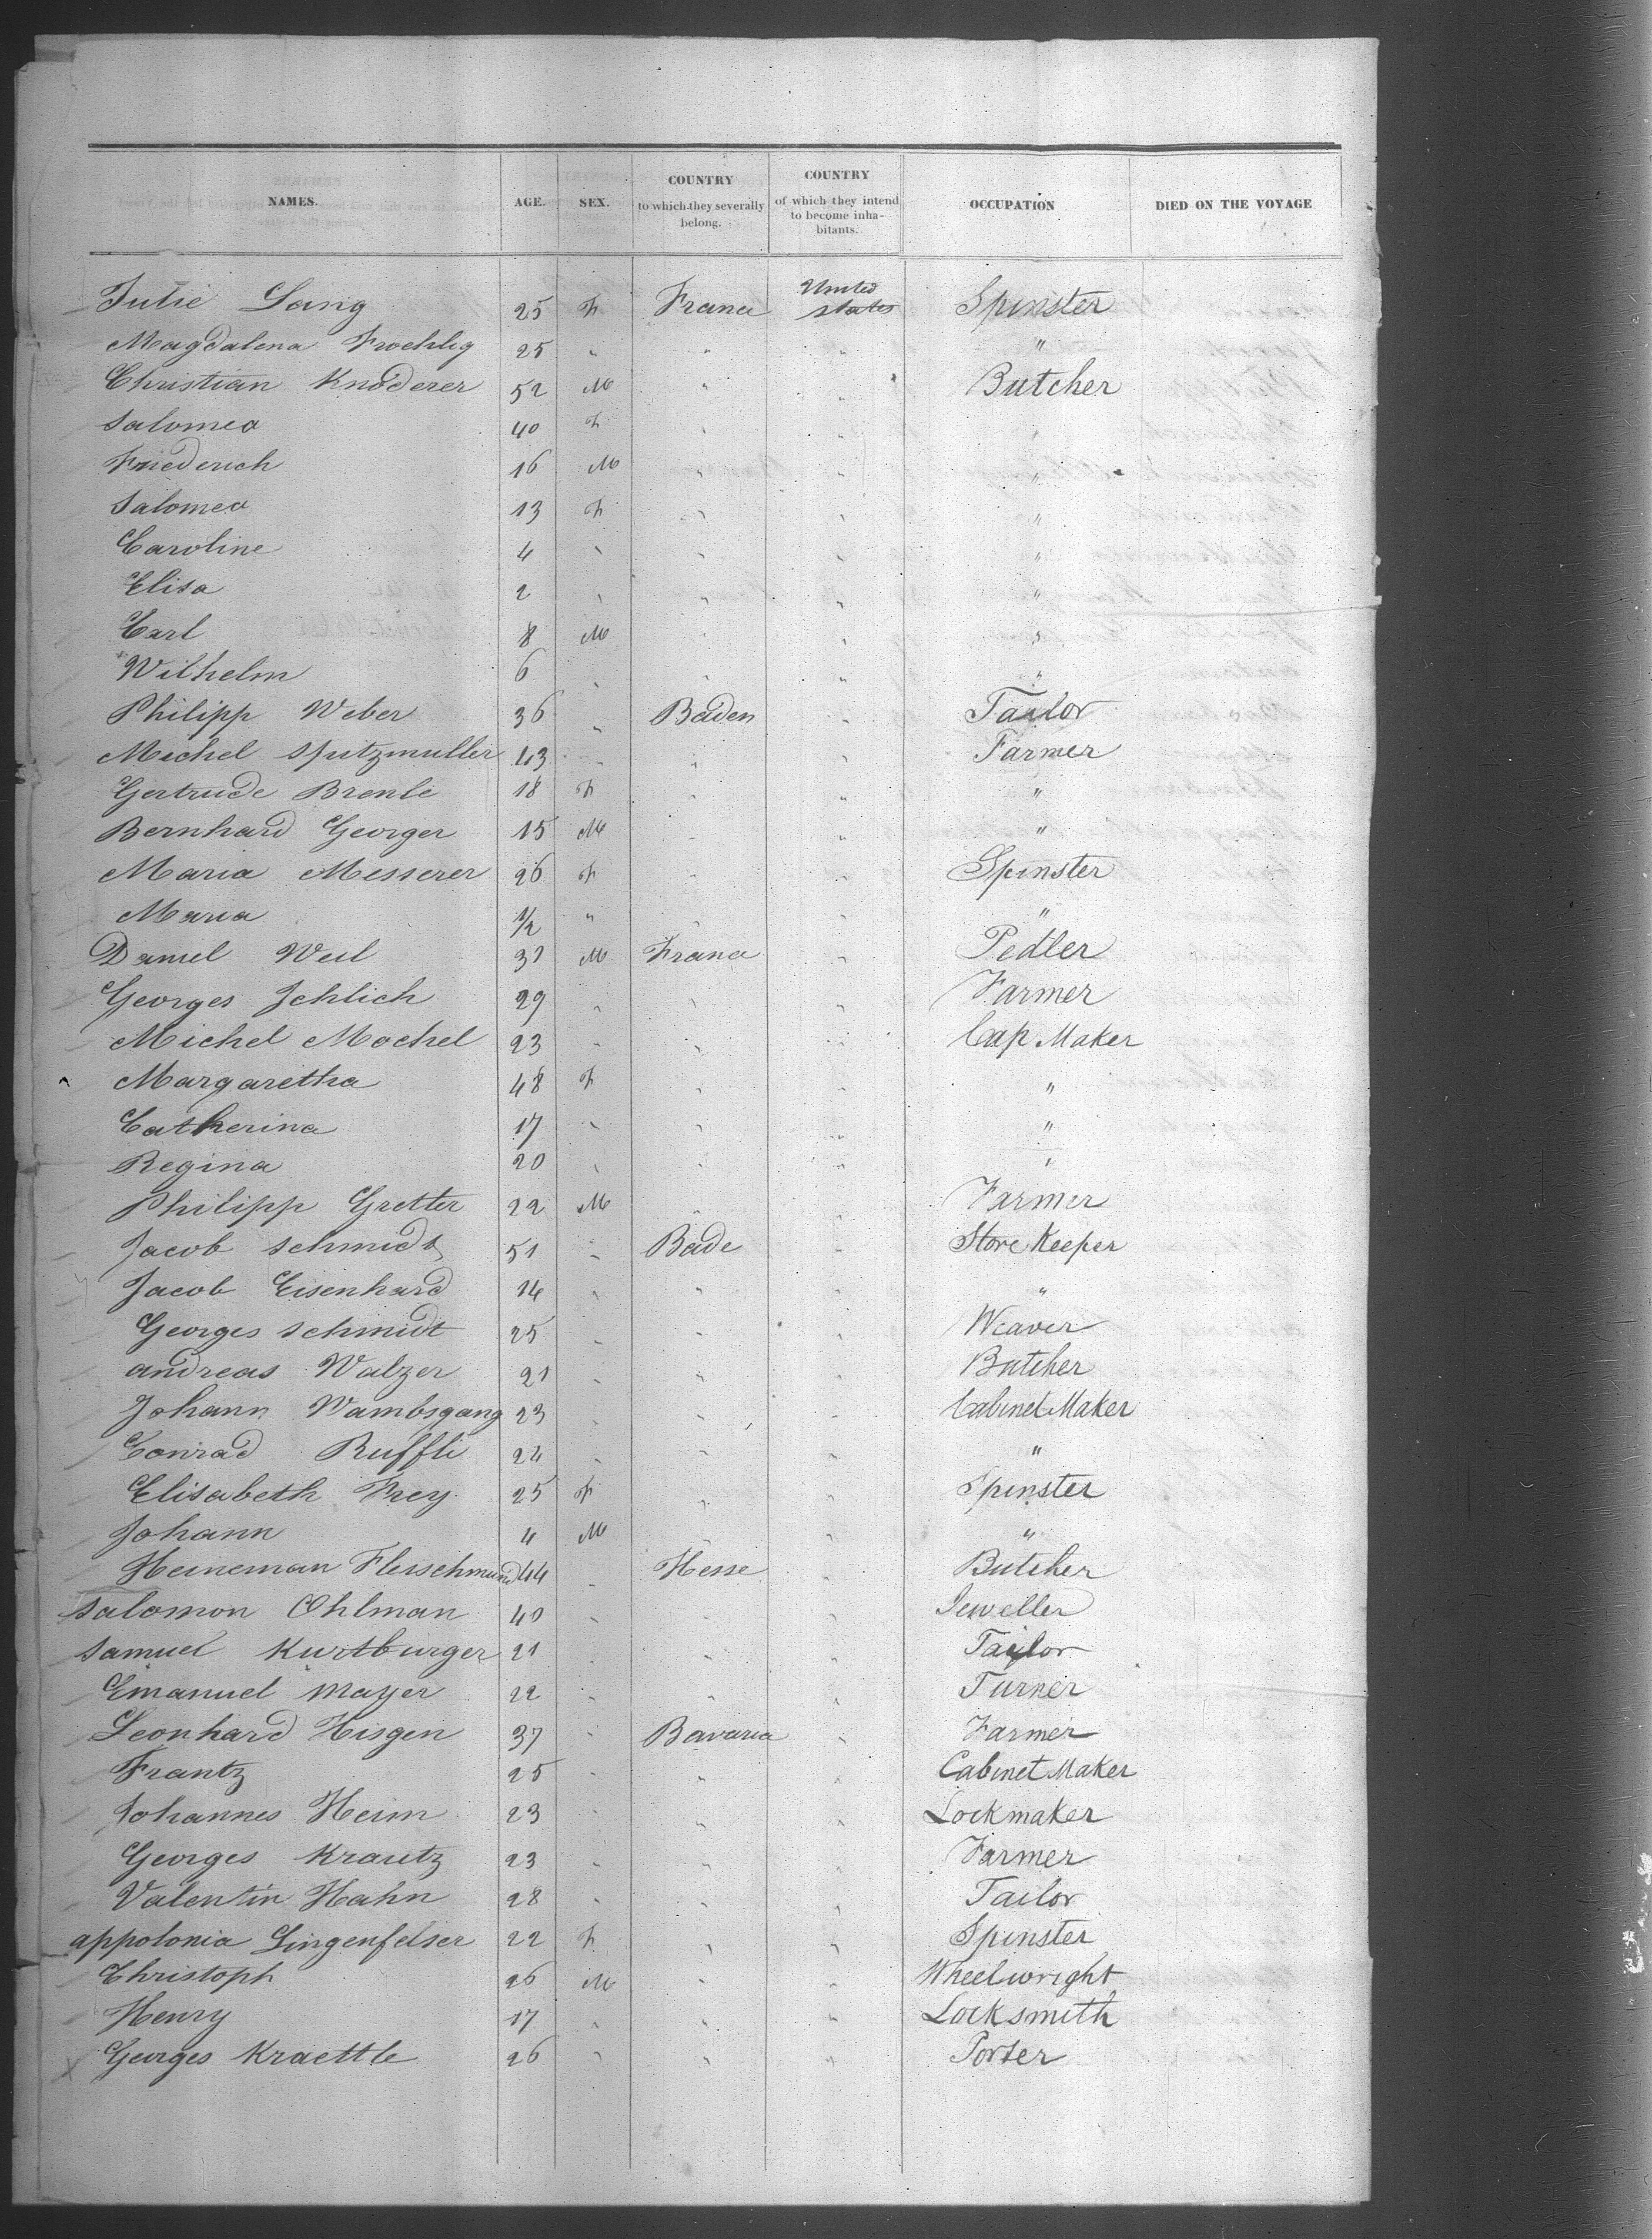 NAMES. AGE. SEX. COUNTRY to which they severally belong. COUNTRY of which they intend to become inhabitants. OCCUPATION DIED ON THE VOYAGE
Julie Lang 25 F France United states Spinster
Magdalena Froehlig 25 " " " "
Christian Knoderer 52 M " " Butcher
Salomea 40 F " " "
Friederich 16 M " " "
Salomea 13 F " " "
Caroline 4 " " " "
Elisa 2 " " " "
Carl 8 M " " "
Wilhelm 6 " " " "
Philipp Weber 36 " Baden " Tailor
Michel Spitzmuller 43 " " " Farmer
Gertrude Brenle 18 F " " "
Bernhard Georger 15 M " " "
Maria Messerer 26 F " " Spinster
Maria 1/2 " " " "
Daniel Weil 31 M France " Pedler
Georges Schlich 29 " " " Farmer
Michel Mochel 23 " " " Cap Maker
Margaretha 48 F " " "
Catherina 17 " " " "
Regina 20 " " " "
Philipp Gretter 22 M " " Farmer
Jacob Schmidt 51 " Bade " Store Keeper
Jacob Eisenhard 14 " " " "
Georges Schmidt 25 " " " Weaver
Andreas Walzer 21 " " " Butcher
Johann Wambsgang 23 " " " Cabinet Maker
Conrad Ruffli 24 " " " "
Elisabeth Frey 25 F " " Spinster
Johann 4 M " " "
Heineman Fleischmand 44 " Hesse " Butcher
Salomon Ohlman 40 " " " Jeweller
Samuel Kurtburger 21 " " " Tailor
Emanuel Mayer 22 " " " Turner
Leonhard Hisgen 37 " Bavaria " Farmer
Frantz 25 " " " Cabinet Maker
Johannes Heim 23 " " " Lockmaker
Georges Krautz 23 " " " Farmer
Valentin Hahn 28 " " " Tailor
Appolonia Lingenfelser 22 F " " Spinster
Christoph 26 M " " Wheelwright
Henry 17 " " " Locksmith
Georges Kraettle 26 " " " Porter